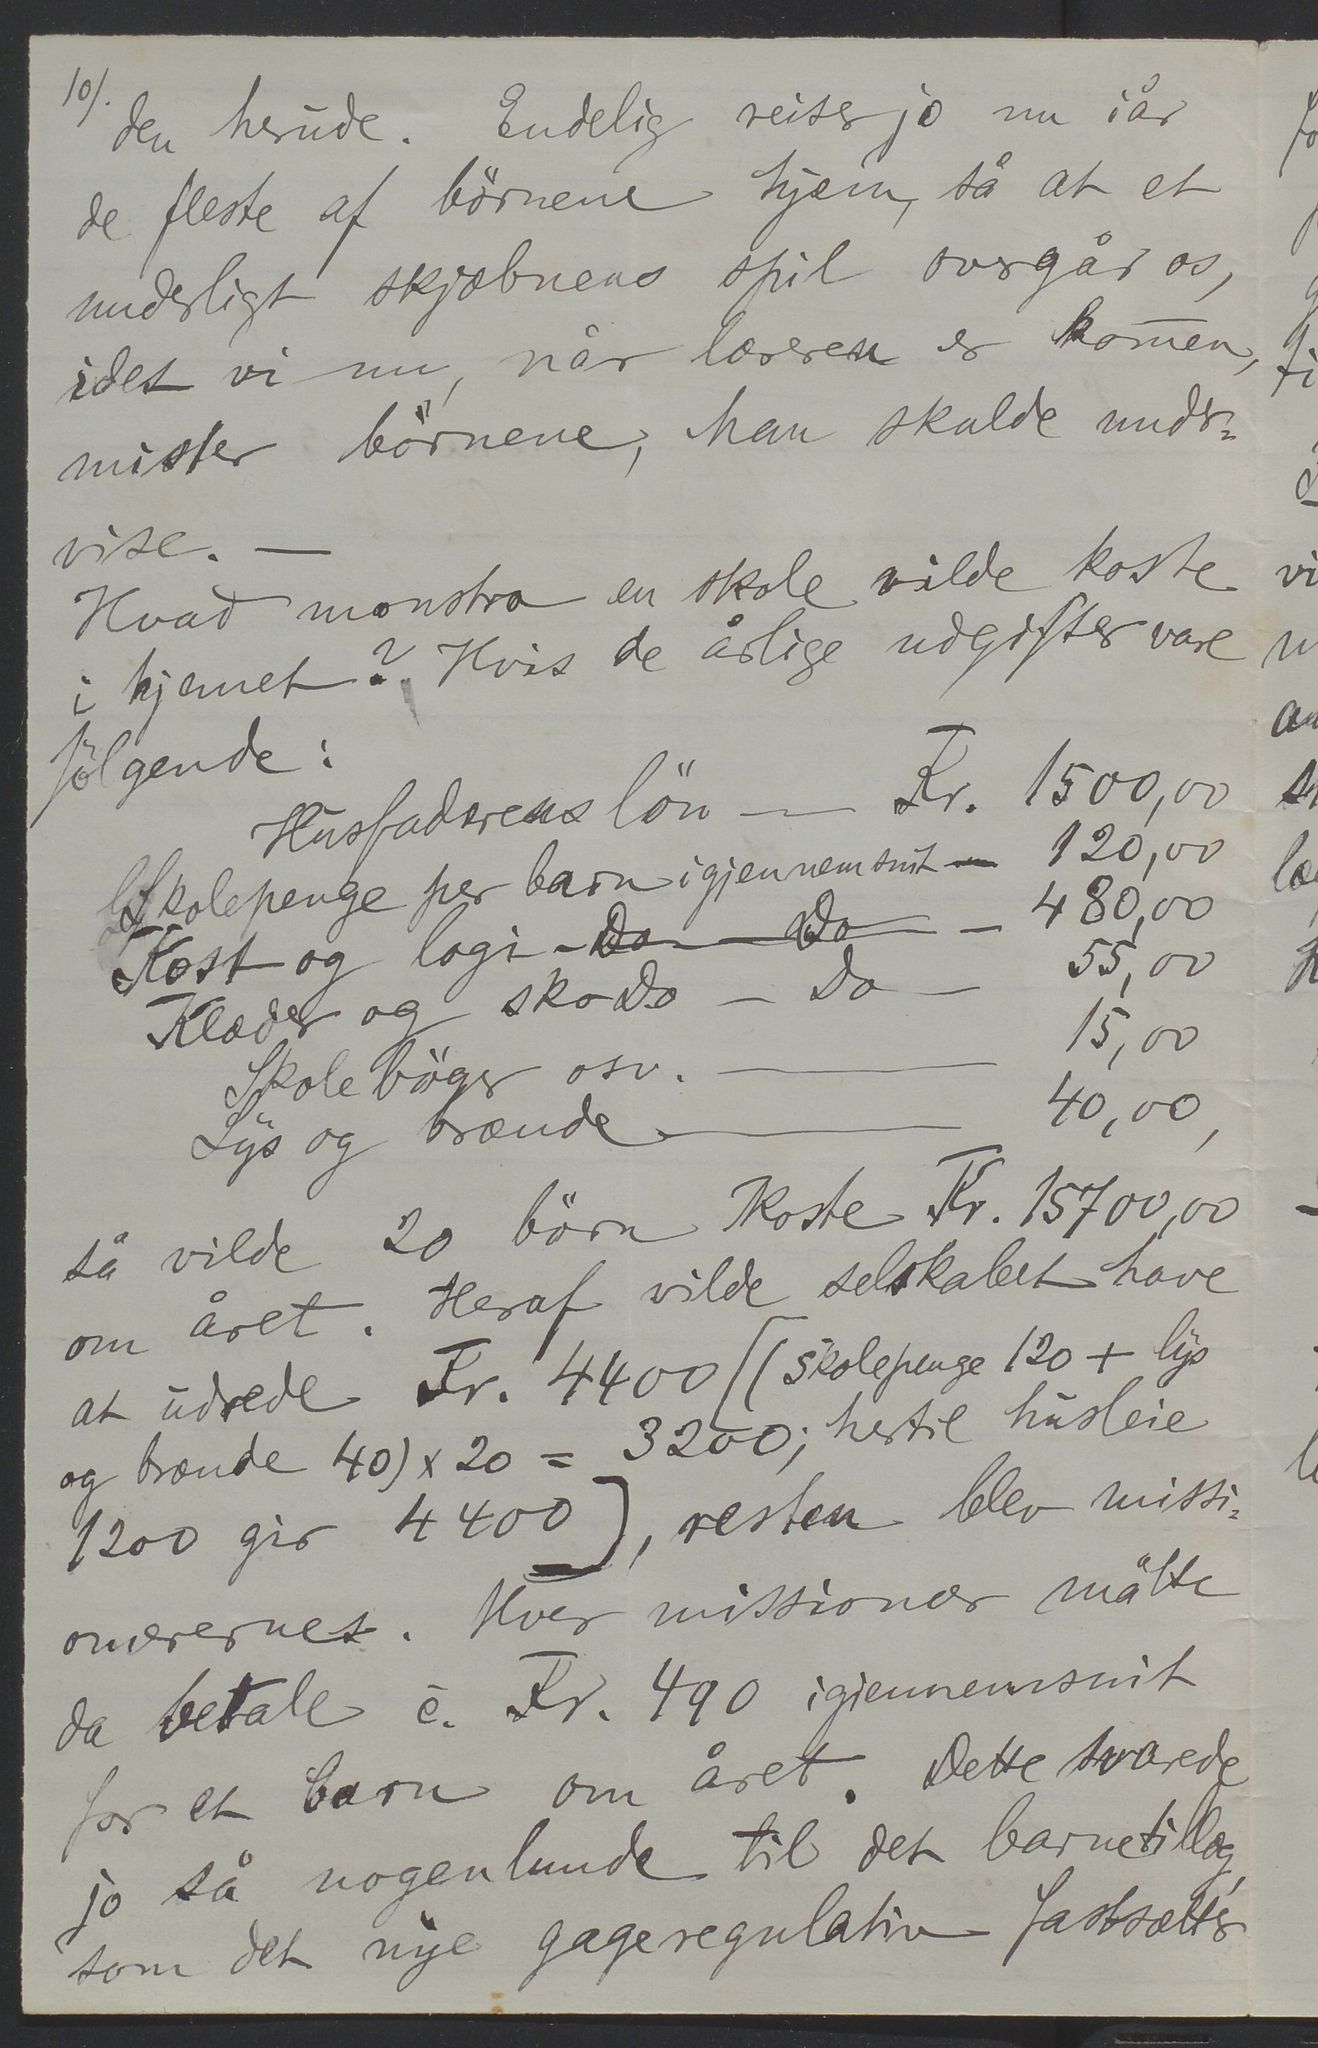 10/.
den herude. Endelig reiser jo nu iår
de fleste af börnene hjem, så at et
underligt skjæbnens spil overgår os,
idet vi nu, når læreren er kom̄en,
mister börnene, han skulde under-
vise. —
Hvad monstro en skole vilde koste
i hjemet? Hvis de årlige udgifter vare
fölgende:
Husfaderens lön — Kr. 1500,00
Skolepenge per barn igjennemsnit — 120,00
Kost og logi - Do — Do — 480,00
Klæder og sko Do — Do — 55,00
Skoleböger osv. — 15,00
Lys og brænde — 40,00,
så vilde 20 börn koste Kr. 15700,00
om året. Heraf vilde selskabet have
at udrede Kr. 4400 [(skolepenge 120 + lys
og brænde 40) x 20 = 3200; hertil husleie
1200 gir 4400], resten blev missi-
onærernes. Hver missionær måtte
da betale c. Kr. 490 igjennemsnit
for et barn om året. Dette svarede
jo så nogenlunde til det barnetillæg,
som det nye gageregulativ fastsætter